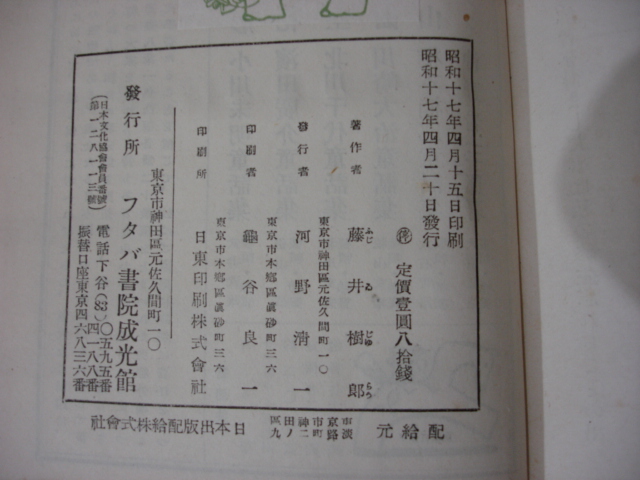 昭和十七年四月十五日印刷
昭和十七年四月二十日發行
定價壹圓八拾錢
著作者 藤井樹郎
ふぢゐじゆらう
東京市神田區元佐久間町一〇
發行者 河野清一
東京市本鄕區眞砂町三六
印刷者 龜谷良一
東京市本鄕區眞砂町三六
印刷所 日東印刷株式會社
東京市神田區元佐久間町一〇
發行所 フタバ書院成光館
電話下谷(83)〇五九五番
四一八八番
振替口座東京四六八三六番
(日本文化協會會員番號
第一二八一一三號)
配給元
東京市神田區
淡路町二ノ九
日本出版配給株式會社